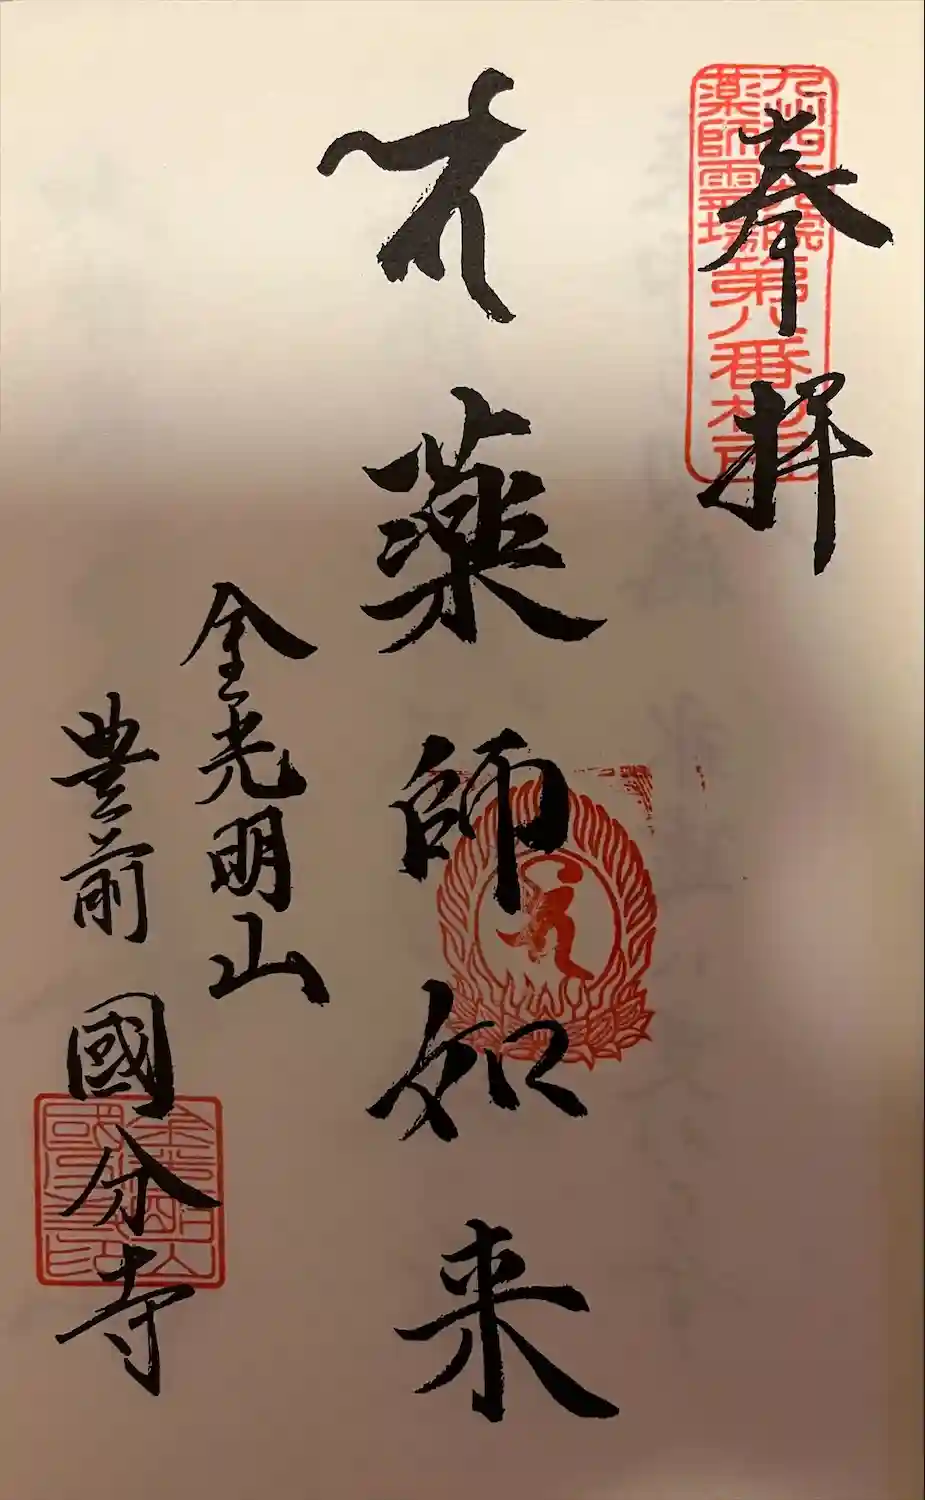 奉拝
九州四十九院
薬師霊場第八番札所
薬師如来
金光明山
豊前國分寺